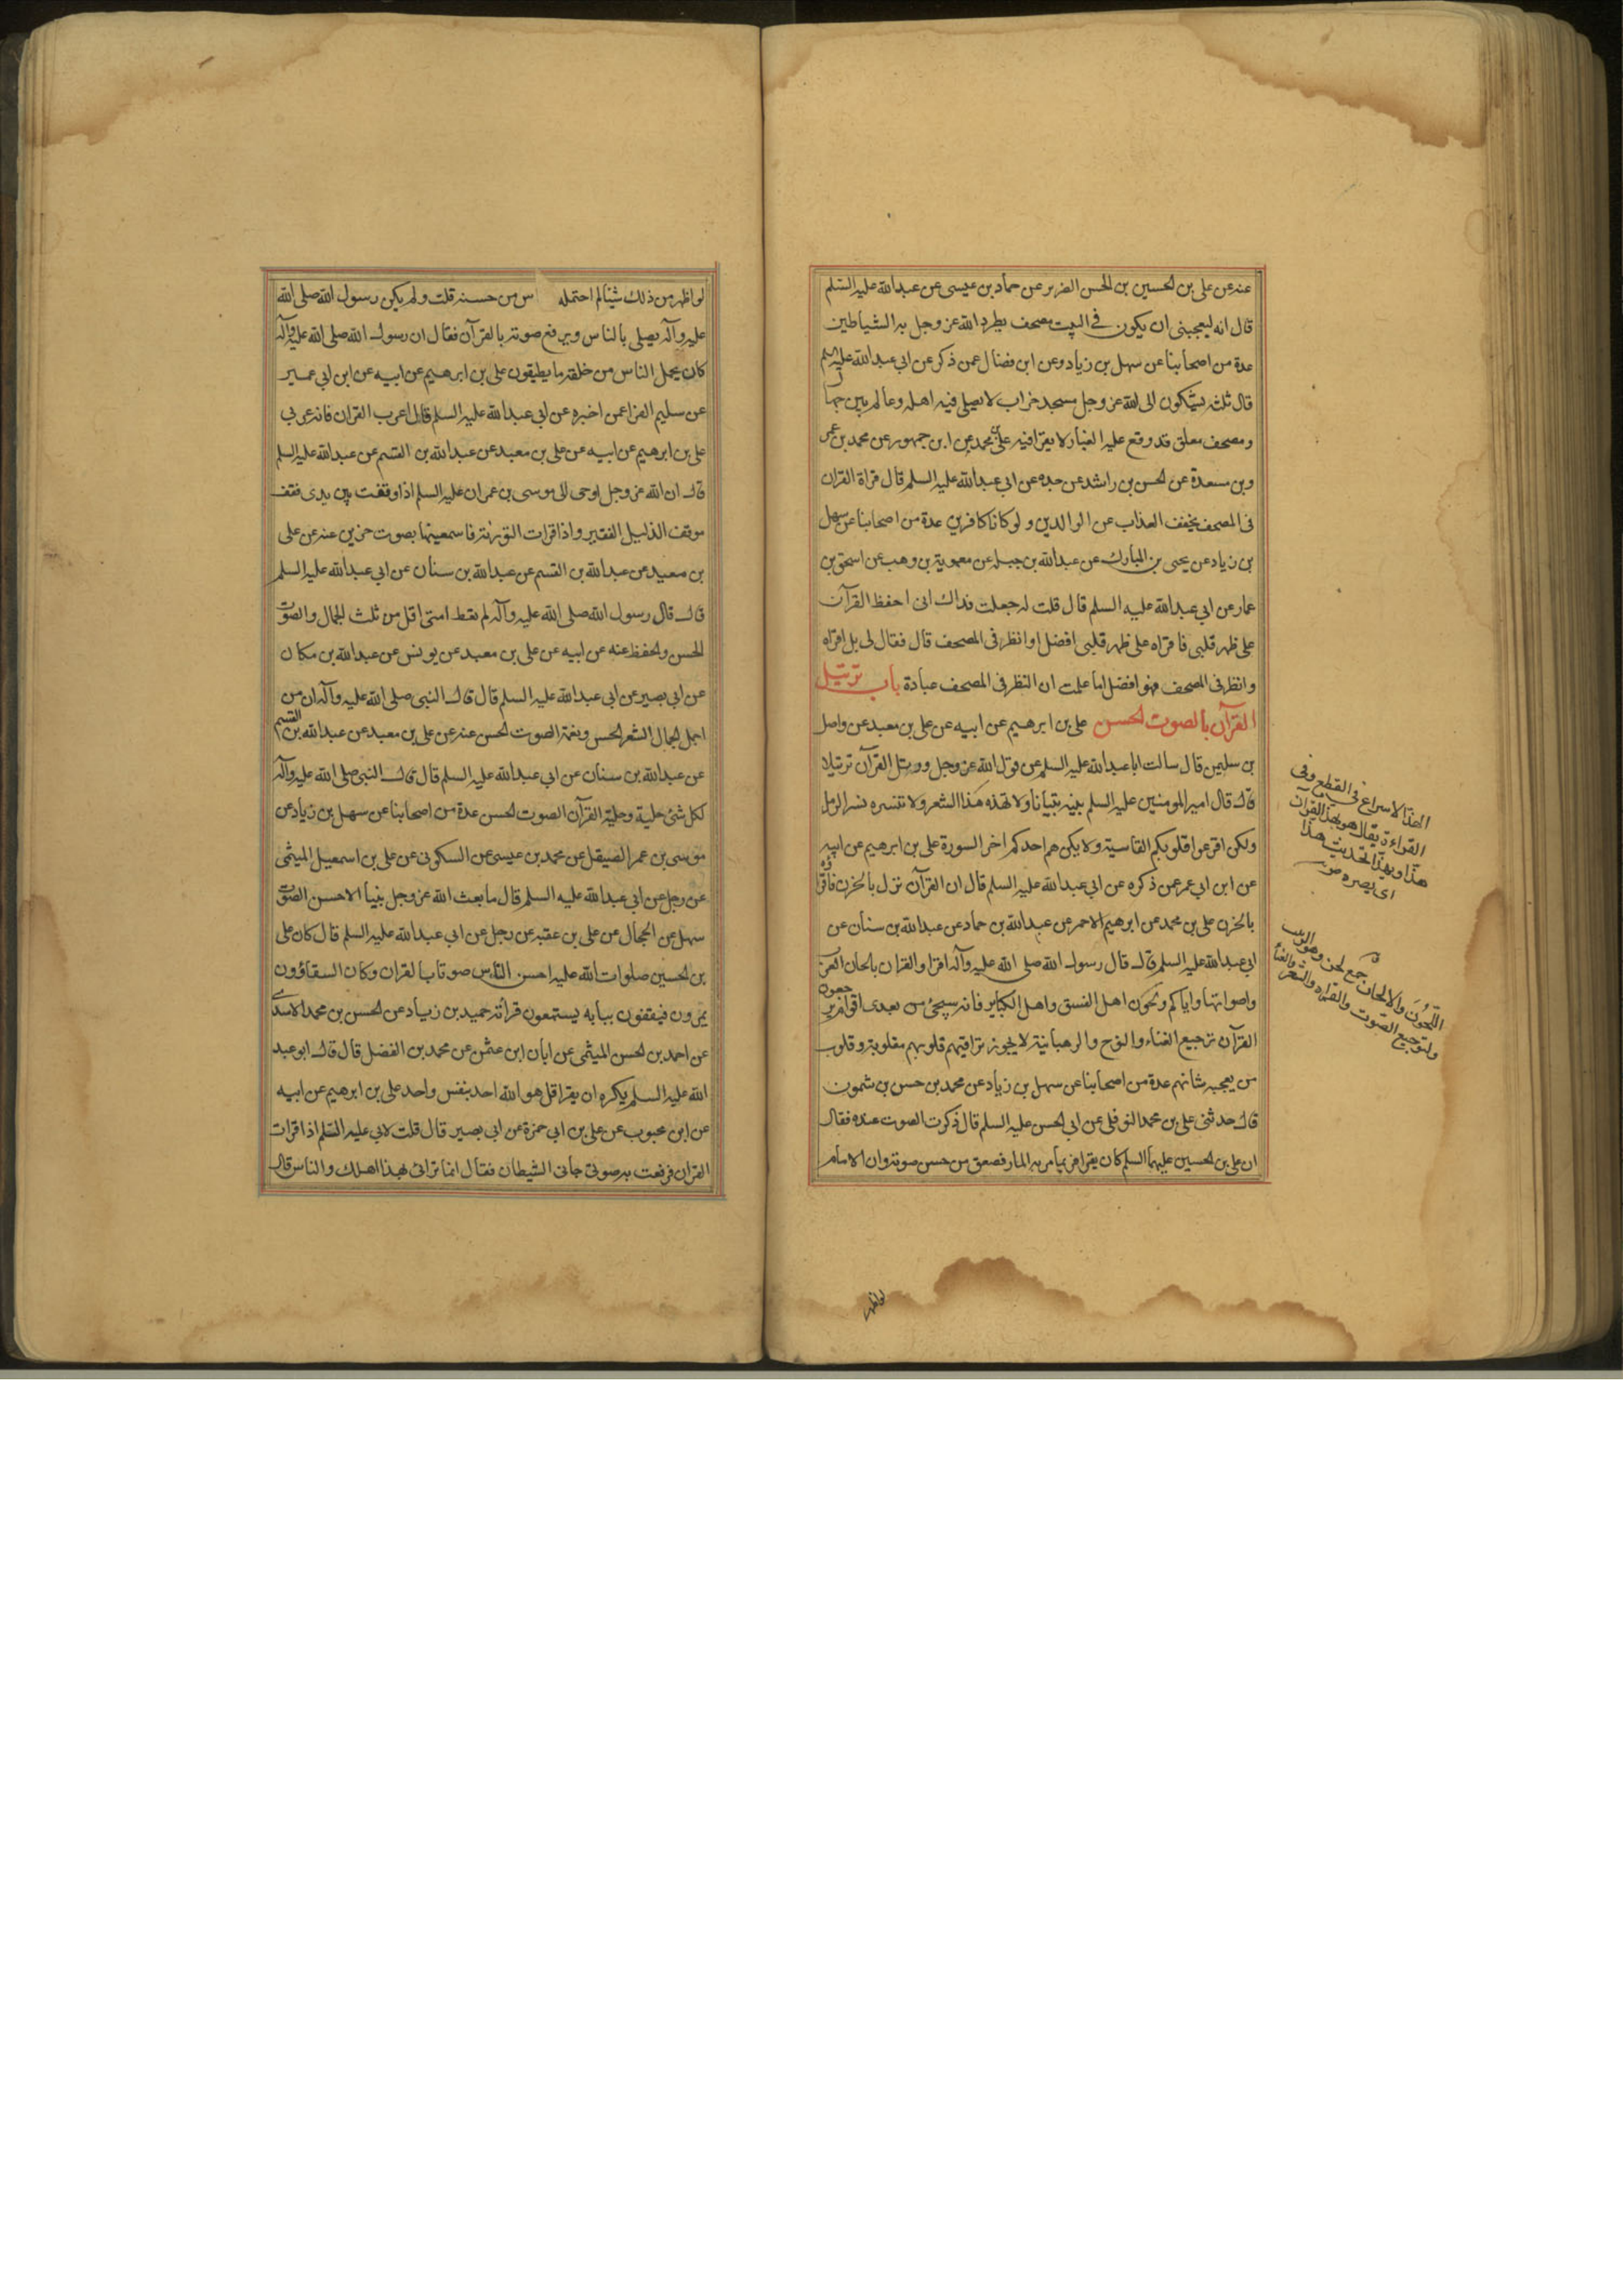 عنه عن على بن الحسين بن الحسن الضرير عن حماد بن عيسى عن عبدالله عليه السلم
قال انه ليعجبنى ان يكون فى البيت مصحف يطرد الله عز وجل به الشياطين
عدة من اصحابنا عن سهل بن زياد وعن ابن فضال عمن ذكر عن ابي عبدالله عليه السلم
قال ثلثه يشكون الى الله عز وجل مسجد خراب لا يصلى فيه اهله وعالم بين جهال
ومصحف معلق قد وقع عليه الغبار لا يقرا فيه على بن محمد عن ابن جمهور عن محمد بن عمر
وبن مسعدة عن الحسن بن راشد عن جده عن ابي عبدالله عليه السلم قال قراة القران
فى المصحف يخفف العذاب عن الوالدين ولو كانا كافرين عدة من اصحابنا عن سهل
بن زياد عن يحيى بن المبارك عن عبدالله بن جبله عن معوية بن وهب عن اسحق بن
عمار عن ابي عبدالله عليه السلم قال قلت له جعلت فداك انى احفظ القرآن
على ظهر قلبى فاقراه على ظهر قلبى افضل او انظر فى المصحف قال فقال لى بل اقراه
وانظر فى المصحف فهو افضل اما علمت ان النظر فى المصحف عبادة باب ترتيل
القرآن بالصوت الحسن على بن ابرهيم عن ابيه عن على بن معبد عن واصل
بن سليمن قال سالت ابا عبدالله عليه السلم عن قول الله عز وجل ورتل القرآن ترتيلا
قال قال امير المومنين عليه السلم بينه تبيانا ولا تهذه هذا الشعر ولا تنثره نثر الرمل
ولكن اقرعوا قلوبكم القاسية ولا يكن هم احدكم اخر السورة على بن ابرهيم عن ابيه
عن ابن ابي عمر عن ذكره عن ابي عبدالله عليه السلم قال ان القرآن نزل بالحزن فاقراوه
بالحزن على بن محمد عن ابرهيم الاحمر عن عبدالله بن حماد عن عبدالله بن سنان عن
ابي عبدالله عليه السلم قال قال رسول الله صلى الله عليه وآله اقراوا القران بالحان العرب
واصواتها واياكم ولحون اهل الفسق واهل الكباير فانه سيجئ من بعدى اقوام يرجعون
القرآن ترجيع الغناء والنوح والرهبانية لا يجوز تراقيهم قلوبهم مقلوبة وقلوب
من يعجبه شانهم عدة من اصحابنا عن سهل بن زياد عن محمد بن حسن بن شمون
قال حدثنى على بن محمد النوفلى عن ابي الحسن عليه السلم قال ذكرت الصوت عنده فقال
ان على بن الحسين عليهما السلم كان يقرا فربما مر به المار فصعق من حسن صوته وان الامام
الهذ الاسراع فى القطع وفى
القراءة يقال هو يهذ القرآن
هذا ويهذ الحديث هذا
اى يسرده
اللحون والالحان جمع لحن وهو التطريب
وترجيع الصوت والقراءة والشعر والغناء
لو اظهر
لو اظهر من ذلك شيئا لم احتمله س من حسنه قلت ولم يكن رسول الله صلى الله
عليه وآله يصلى بالناس ويرفع صوته بالقرآن فقال ان رسول الله صلى الله عليه وآله
كان يحمل الناس من خلفه ما يطيقون على بن ابرهيم عن ابيه عن ابن ابي عمير
عن سليم الفرا عمن اخبره عن ابي عبدالله عليه السلم قال اعرب القران فانه عربى
على بن ابرهيم عن ابيه عن على بن معبد عن عبدالله بن القسم عن عبدالله عليه السلم
قال ان الله عز وجل اوحى الى موسى بن عمران عليه السلم اذا وقفت بين يدى فقف
موقف الذليل الفقير واذا قرات التورية فاسمعنيها بصوت حزين عنه عن على
بن معبد عن عبدالله بن القسم عن عبدالله بن سنان عن ابي عبدالله عليه السلم
قال قال رسول الله صلى الله عليه وآله لم يعط امتى اقل من ثلث الجمال والصوت
الحسن والحفظ عنه عن ابيه عن على بن معبد عن يونس عن عبدالله بن مسكان
عن ابي بصير عن ابي عبدالله عليه السلم قال قال النبى صلى الله عليه وآله ان من
اجمل الجمال الشعر الحسن ونغمة الصوت الحسن عنه عن على بن معبد عن عبدالله بن القسم
عن عبدالله بن سنان عن ابي عبدالله عليه السلم قال قال النبى صلى الله عليه وآله
لكل شئ حلية وحلية القرآن الصوت الحسن عدة من اصحابنا عن سهل بن زياد عن
موسى بن عمر الصيقل عن محمد بن عيسى عن السكونى عن على بن اسمعيل الميثمى
عن رجل عن ابي عبدالله عليه السلم قال ما بعث الله عز وجل نبيا الا حسن الصوت
سهل عن الحجال عن على بن عقبه عن رجل عن ابي عبدالله عليه السلم قال كان على
بن الحسين صلوات الله عليه احسن الناس صوتا بالقران وكان السقاؤون
يمرون فيقفون ببابه يستمعون قرائته حميد بن زياد عن الحسن بن محمد الاسدى
عن احمد بن الحسن الميثمى عن ابان ابن عثمن عن محمد بن الفضل قال قال ابو عبد
الله عليه السلم يكره ان يقرا قل هو الله احد بنفس واحد على بن ابرهيم عن ابيه
عن ابن محبوب عن على بن ابي حمزة عن ابي بصير قال قلت لابي عليه السلم اذا قرات
القران فرفعت به صوتى جانى الشيطان فقال انما ترائى بهذا اهلك والناس قال